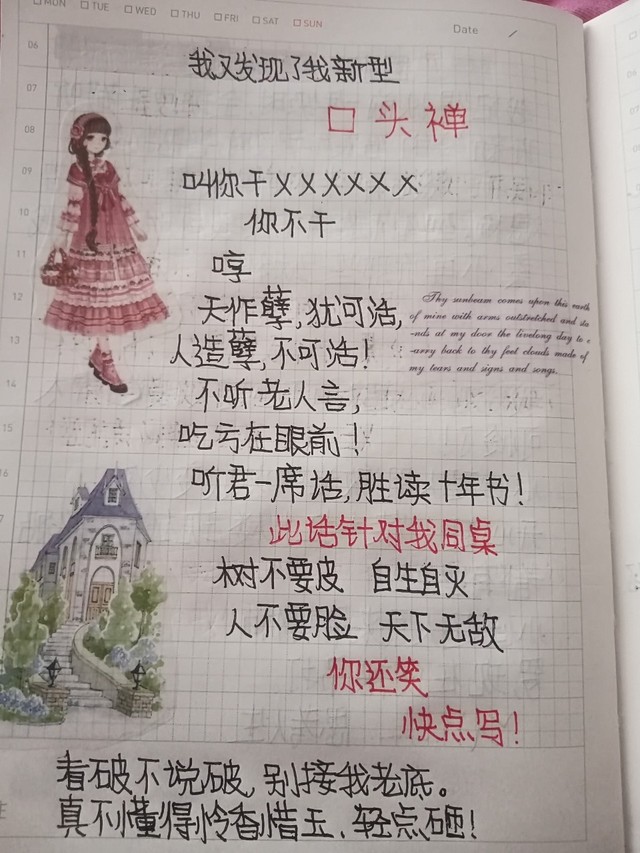 MON TUE WED THU FRI SAT SUN
Date /
06
07
08
09
10
11
12
13
14
15
16
我又发现了我新型
口头禅
叫你干XXXXXX
你不干
哼
天作孽,犹可浩,
人造孽,不可浩!
不听老人言,
吃亏在眼前!
听君一席话,胜读十年书!
此话针对我同桌
树不要皮 自生自灭
人不要脸 天下无敌
你还笑
快点写!
看破不说破,别接我老底。
真不懂得怜香惜玉、轻点砸!
Thy sunbeam comes upon this earth
of mine with arms outstretched and sta
-nds at my door the livelong day to c
-arry back to thy feet clouds made of
my tears and signs and songs.